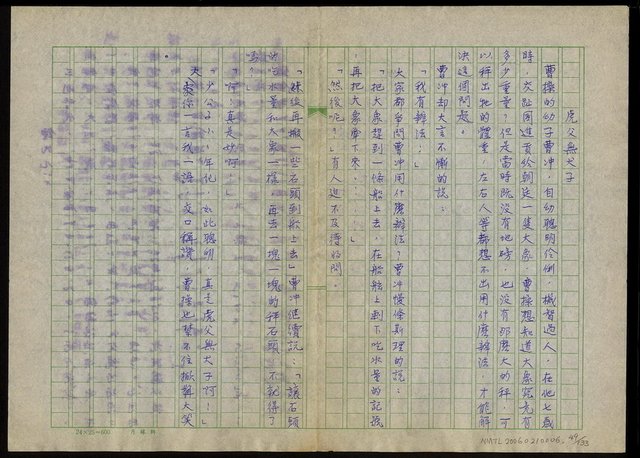 虎父無犬子
曹操的幼子曹冲，自幼聰明伶俐，機智過人，在他七歲
時，交趾國進貢給朝廷一隻大象，曹操想知道大象究竟有
多少重量？但是當時既沒有地磅，也沒有那麼大的秤，可
以秤出牠的體重，左右人等都想不出用什麼辦法，才能解
決這個問題。
曹冲却大言不慚的說：
「我有辦法！」
大家都爭問曹冲用什麼辦法？曹冲慢條斯理的說：
「把大象趕到一條船上去，在船舷上劃下吃水量的記號
，再把大象牽下來。」
「然後呢！」有人迫不及待的問。
「然後再搬一些石頭到船上去」曹冲繼續說：「讓石頭
的吃水量和大象一樣，再去一塊一塊的秤石頭，不就得了
嗎？」
「啊！真是妙啊！」
「少公子小小年紀，如此聰明，真是虎父無犬子啊！」
大家你一言我一語，交口稱讚，曹操也禁不住掀聲大笑
。
24×25=600
NMTL20060210006
49/133